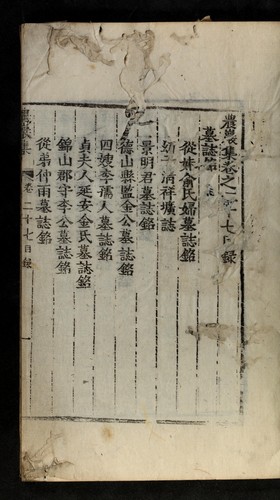 農巖集卷之二十七目錄
墓誌銘
從妹俞氏婦墓誌銘
幼子清祥壙誌
景明君墓誌銘
德山縣監金公墓誌銘
四嫂李孺人墓誌銘
貞夫人延安金氏墓誌銘
錦山郡守李公墓誌銘
從弟仲雨墓誌銘
農巖集 卷二十七目錄 一